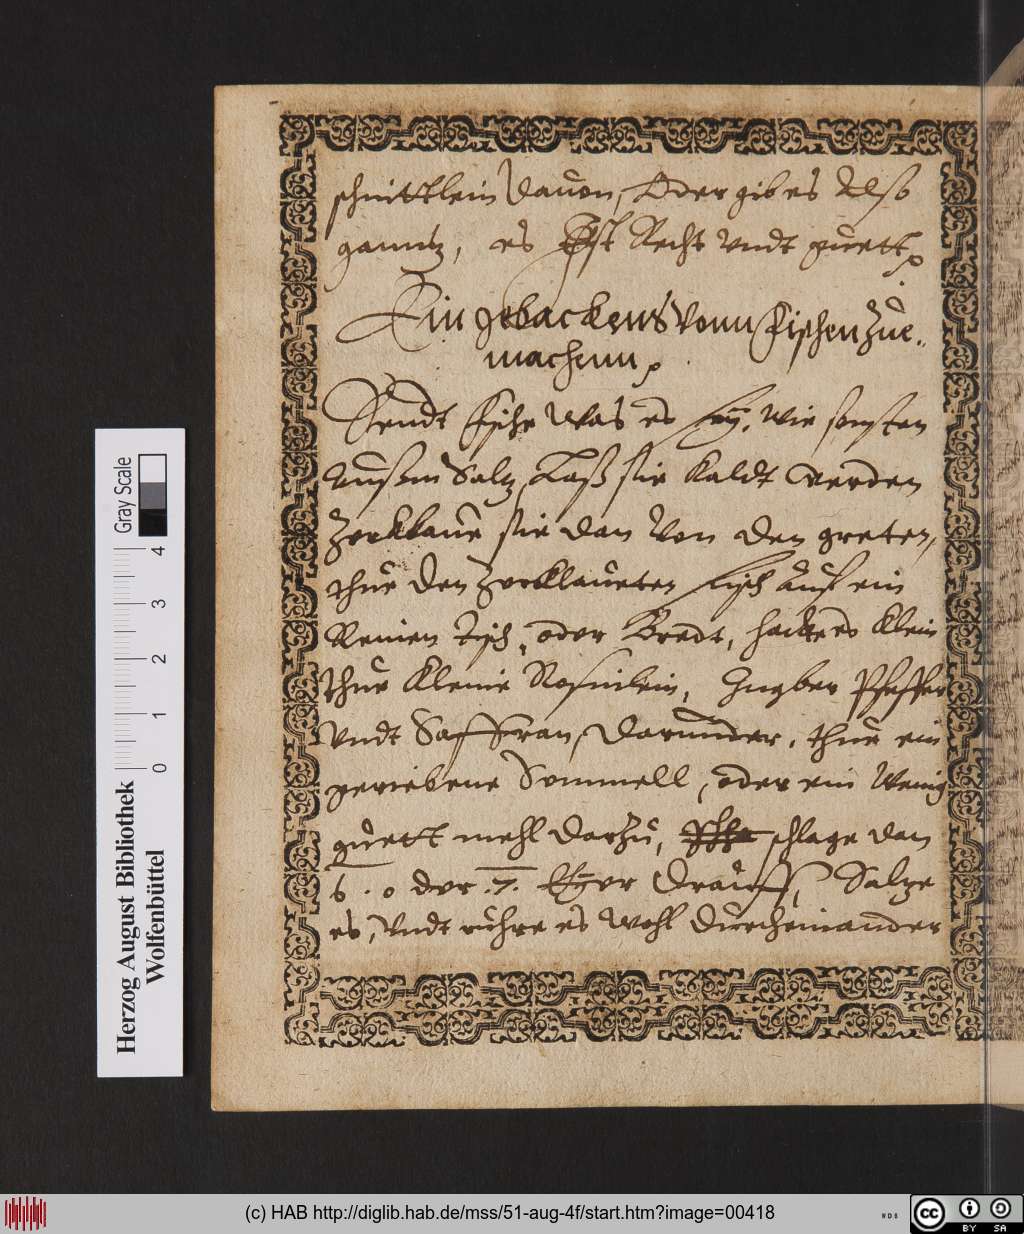 schnittlein dauon, Oder gib es Also
ganntz, es Ist Recht vndt guett
Ein gebackens vonn fischen zue
machenn
Sendt fische Was es sey, wie sonsten
ausm Saltz, Laß sie kaldt werden
Zerklaue sie dan von den greten,
thue den zerklaueten fisch auf ein
Reinen Tisch, oder Bredt, hacke es klein
thue kleine Rosinlein, Ingber Pfeffer
vndt Saffran, darunder, thue ein
geriebene Semmell, oder ein Wenig
guett mehl darzu, schlage dan
6. oder .7. Eyer drauff, Saltze
es, vndt ruhre es Wohl durcheinander
Gray Scale
0 1 2 3 4
Herzog August Bibliothek
Wolfenbüttel
(c) HAB http://diglib.hab.de/mss/51-aug-4f/start.htm?image=00418
WDB
cc
BY SA